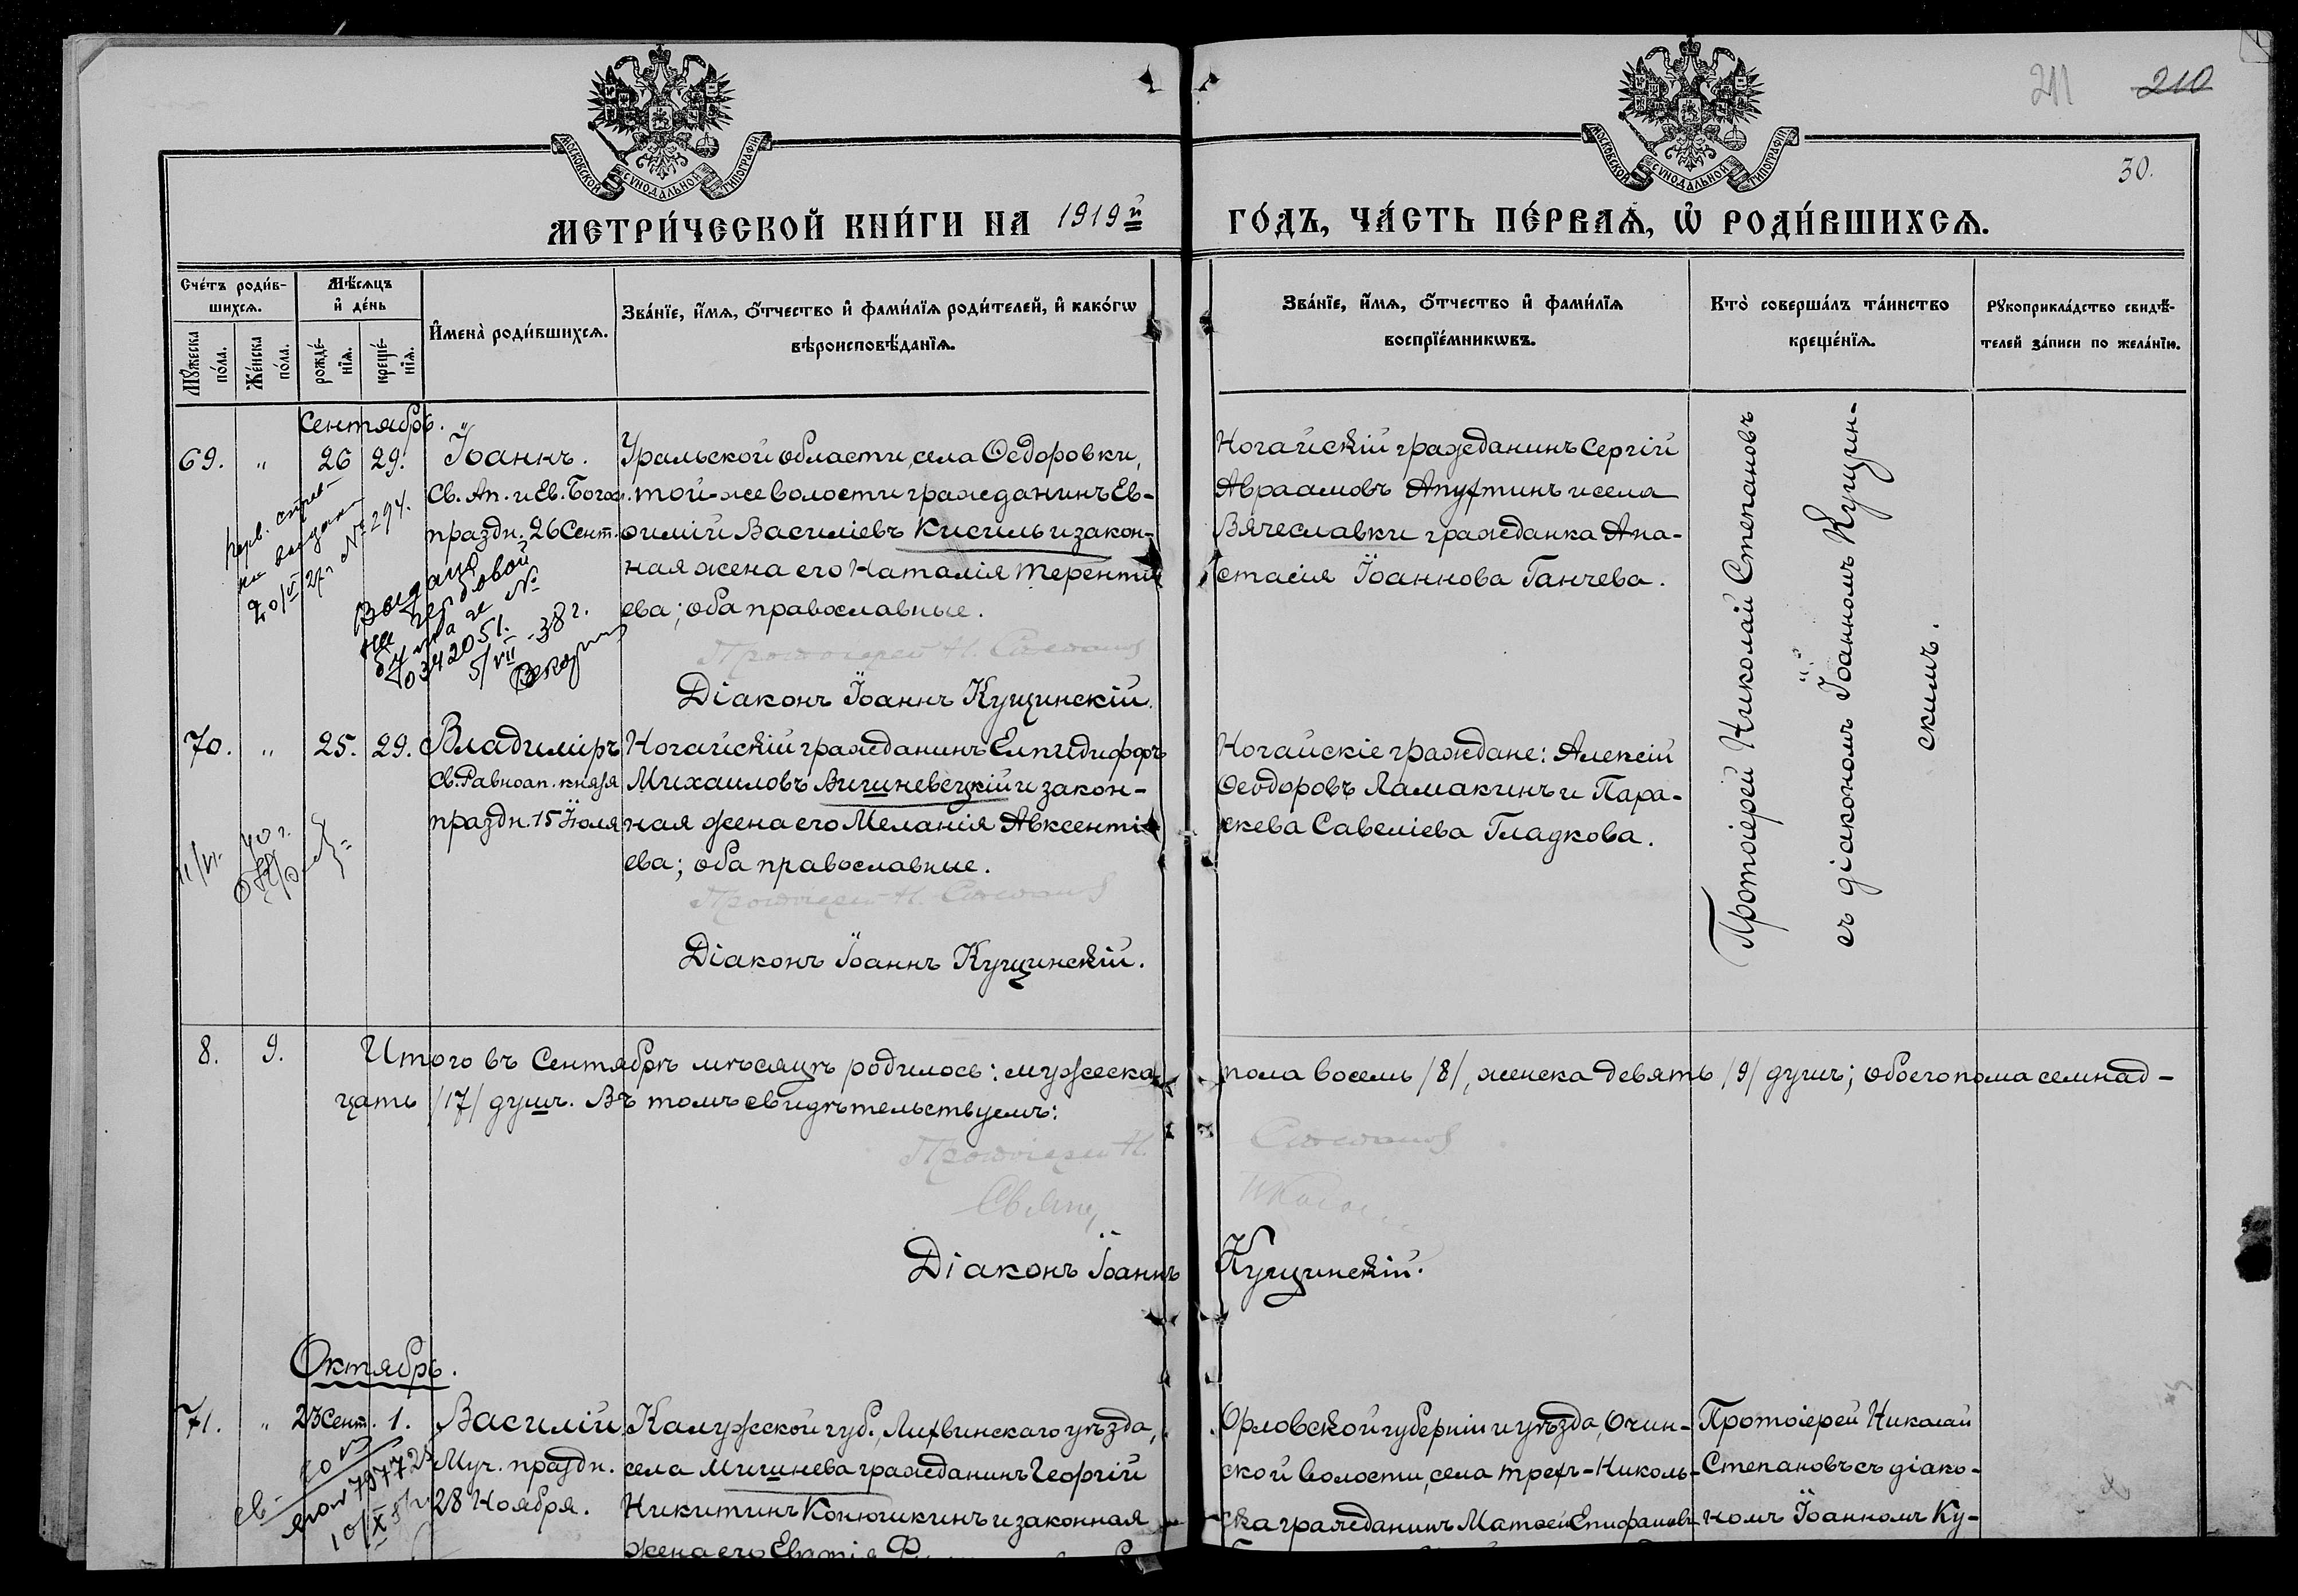 МОСКОВСКОЙ СѴНОДАЛЬНОЙ ТИПОГРАФІИ
МОСКОВСКОЙ СѴНОДАЛЬНОЙ ТИПОГРАФІИ
211 210
30.
МЕТРИ́ЧЕСКОЙ КНИ́ГИ НА 1919й
ГО́ДЪ, ЧА́СТЬ ПЕ́РВАѦ, Ѡ҆ РОДИ́ВШИХСѦ.
Сче́тъ роди́в-
шихсѧ.
Мꙋ́жеска по́ла.
Же́нска по́ла.
Мѣ́сѧцъ
и҆ де́нь
рожде́-
нїѧ.
креще́-
нїѧ.
И҆мена̀ роди́вшихсѧ.
Зва́нїе, и҆́мѧ, ѻ҆́тчество и҆ фами́лїѧ роди́телей, и҆ како́гѡ
вѣроисповѣ́данїѧ.
Зва́нїе, и҆́мѧ, ѻ҆́тчество и҆ фами́лїѧ
воспрїе́мникѡвъ.
Кто̀ соверша́лъ та́инство
креще́нїѧ.
Рꙋкоприкла́дство свидѣ́-
телей за́писи по жела́нїю.
Сентябрь.
69. " 26 29. Іоаннъ.
Св. Ап. и Ев. Богос.
праздн. 26 Сент.
Уральской области, села Ѳедоровки,
той-же волости гражданинъ Ев-
ѳимій Василіевъ Кисиль и закон-
ная жена его Наталія Терентіе
ева; оба православные.
Протоіерей Н. Степановъ
Діаконъ Іоаннъ Кущинскій.
Ногайскій гражданинъ Сергій
Авраамовъ Апухтинъ и села
Вячеславки гражданка Ана-
стасія Іоаннова Ганчева.
Протоіерей Николай Степановъ
съ діакономъ Іоанномъ Кущин-
скимъ.
20/VI 27г № 294.
Выдано
на гербовой
бумаге №
0342051.
5/VII-38г.
70. " 25. 29. Владиміръ
Св. Равноап. князя
праздн. 15 Іюля
Ногайскій гражданинъ Елпидифоръ
Михаиловъ Вишневецкій и закон-
ная жена его Меланія Авксенті-
ева; оба православные.
Протоіерей Н. Степановъ
Діаконъ Іоаннъ Кущинскій.
Ногайскіе граждане: Алексій
Ѳеодоровъ Ламакинъ и Пара-
скева Савеліева Гладкова.
11/VI 40 г.
8. 9. Итого въ Сентябрѣ мѣсяцѣ родилось: мужеска пола восемь /8/, женска девять /9/ душъ; обоего пола семнад-
цать /17/ душъ. Въ томъ свидѣтельствуемъ:
Протоіерей Н. Степановъ
Діаконъ Іоаннъ Кущинскій.
Октябрь.
71. " 23 Сент. 1. Василій
Муч. праздн.
28 Ноября.
Калужской губ., Лихвинскаго уѣзда,
села Мишнева гражданинъ Георгій
Никитинъ Конюшкинъ и законная
жена его
Орловской губерніи и уѣзда, Очин-
ской волости, села Трехъ-Николь-
ска гражданинъ Матѳей Епифановъ
Протоіерей Николай
Степановъ съ діако-
номъ Іоанномъ Ку-